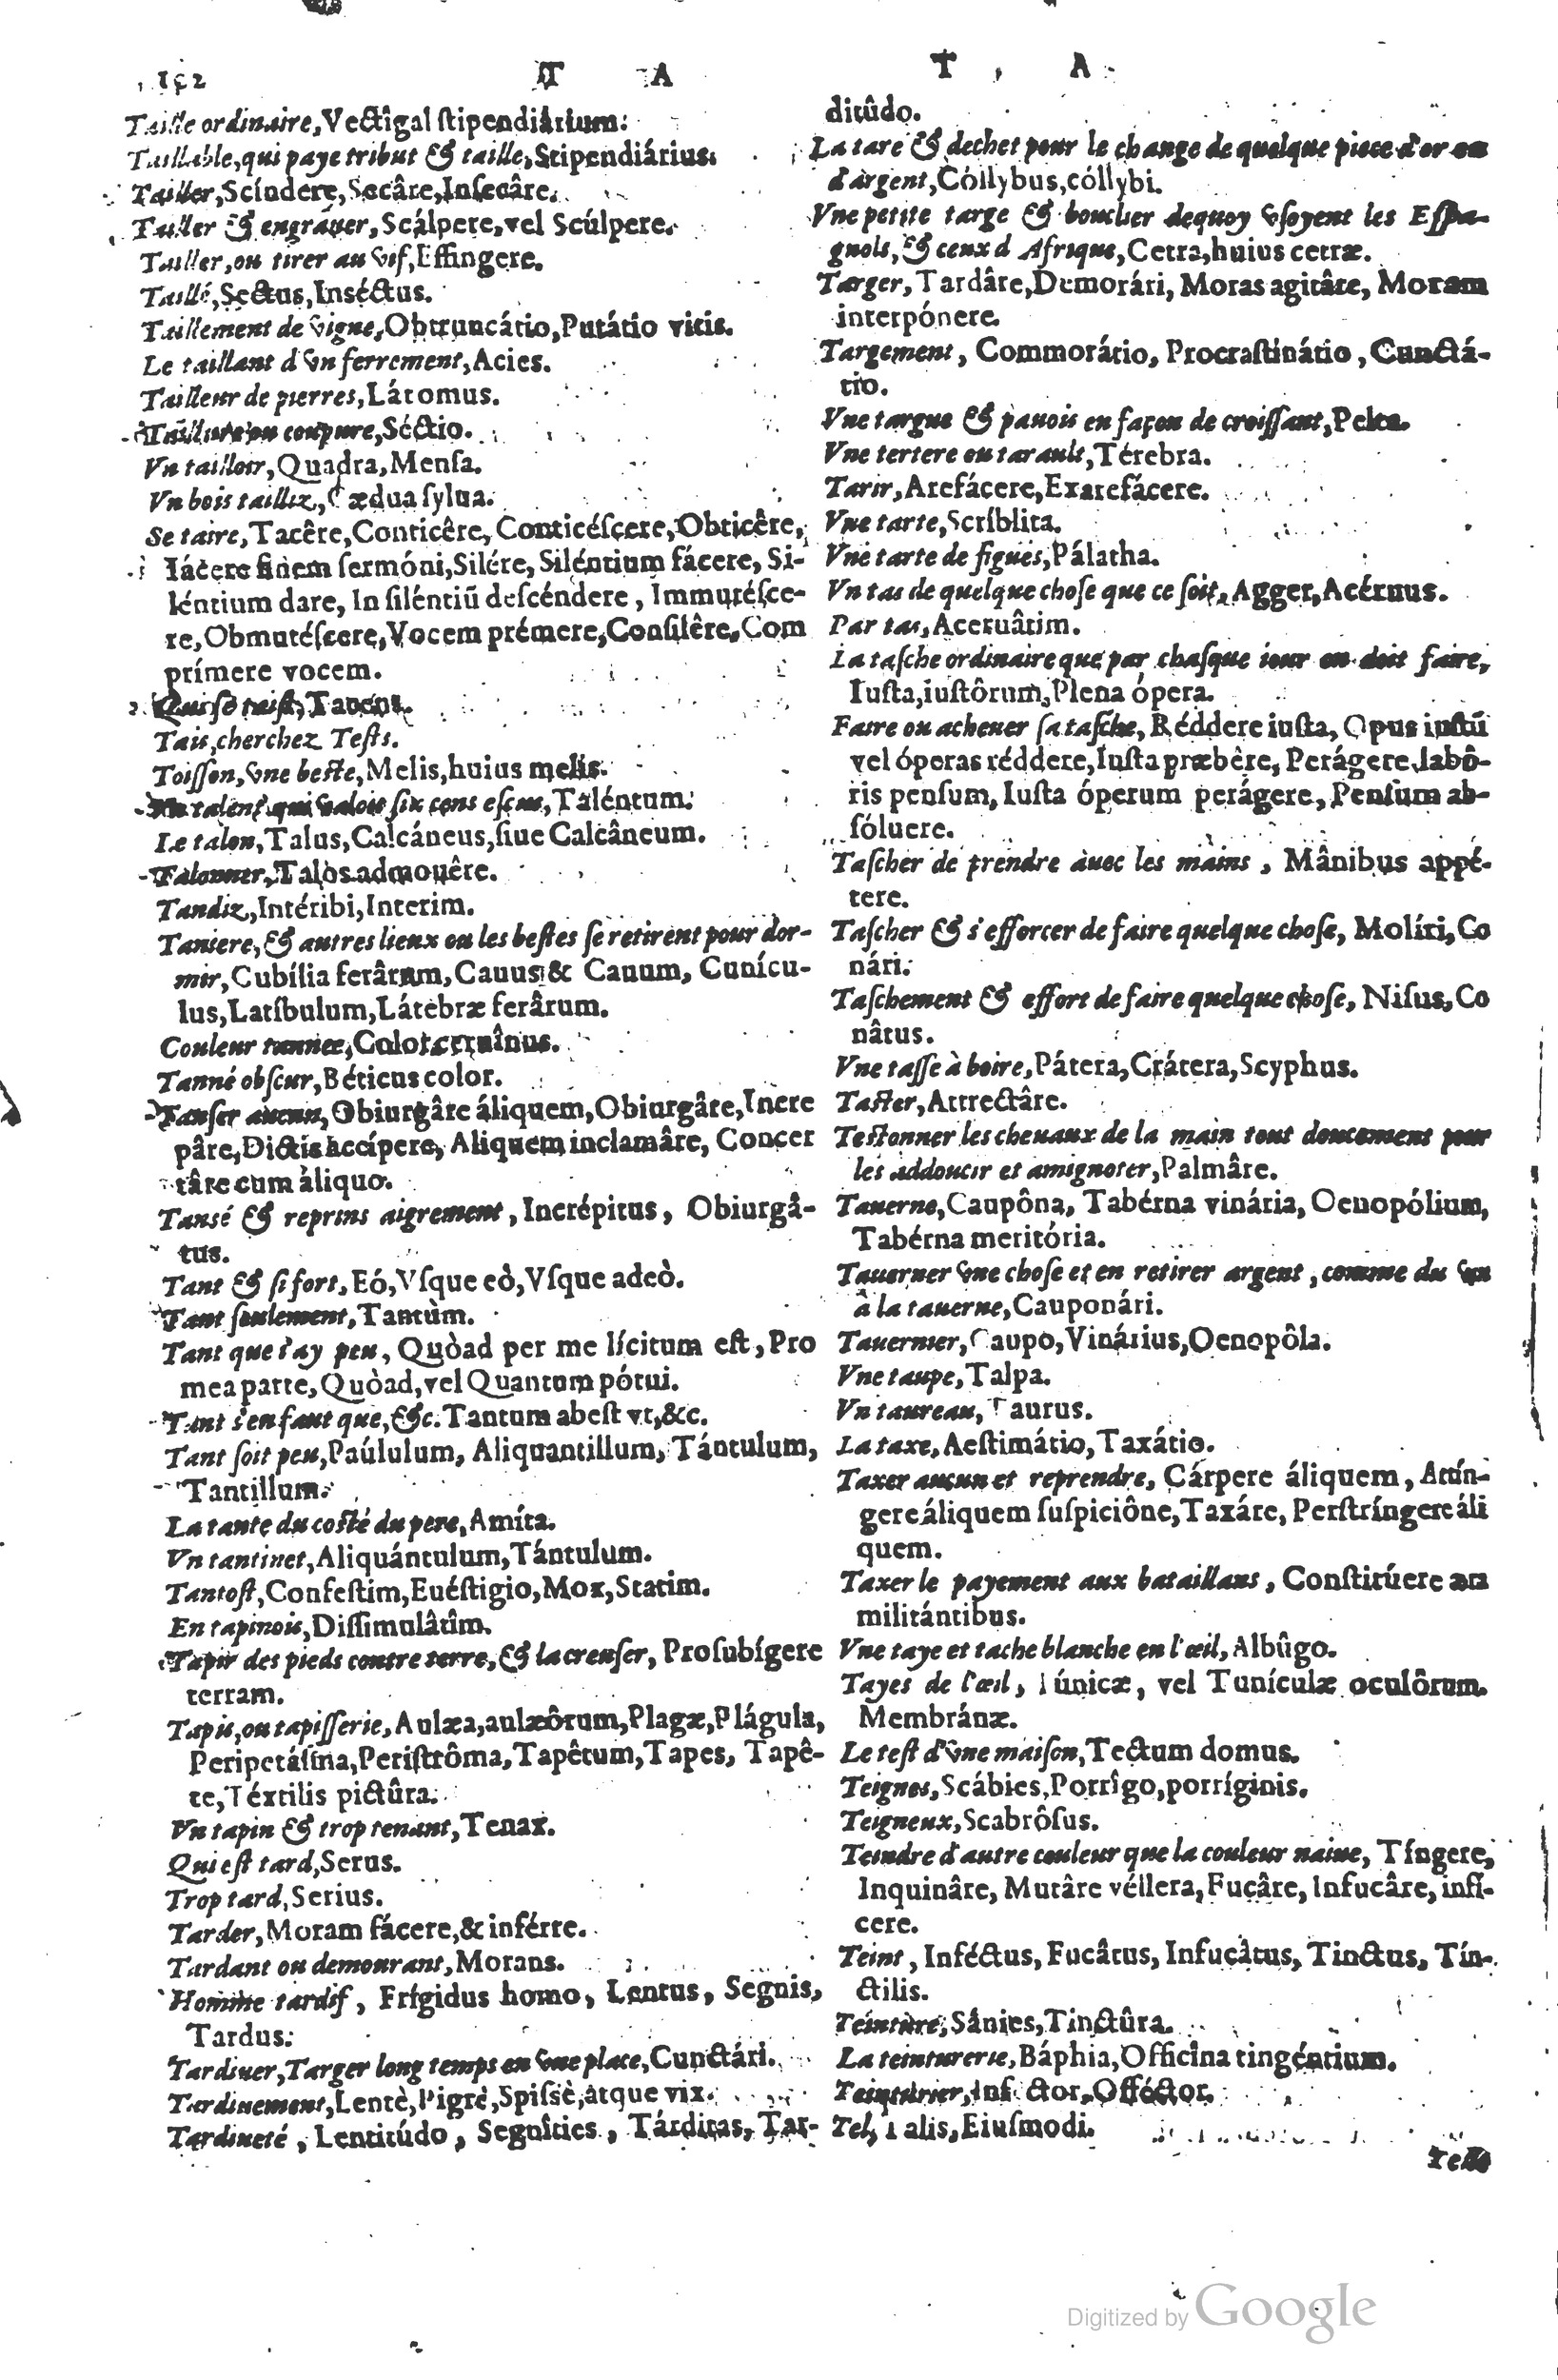 152 T A
Taille ordinaire, Vectîgal ſtipendiárium.
Taillable, qui paye tribut & taille, Stipendiárius.
Tailler, Scíndere, Secâre, Inſecâre.
Tailler & engrauer, Scálpere, vel Scúlpere.
Tailler, ou tirer au vif, Effingere.
Taillé, Sectus, Inséctus.
Taillement de vigne, Obtruncátio, Putátio vitis.
Le taillant d'vn ferrement, Acies.
Tailleur de pierres, Látomus.
Tailleure ou coupure, Séctio.
Vn tailloir, Quadra, Menſa.
Vn bois tailliz, Cædua ſylua.
Se taire, Tacêre, Conticêre, Conticéſcere, Obticêre,
Iácere finem ſermóni, Silére, Siléntium fácere, Si-
léntium dare, In ſiléntiū deſcéndere, Immutéſce-
re, Obmutéſcere, Vocem prémere, Conſilêre, Com
prímere vocem.
Qui ſe taiſt, Tacens.
Tais, cherchez Teſts.
Toiſſon, vne beſte, Melis, huius melis.
Vn talent qui valoit ſix cens eſcus, Taléntum.
Le talon, Talus, Calcáneus, ſiue Calcâneum.
Talonner, Talos admouêre.
Tandiz, Intéribi, Interim.
Taniere, & autres lieux ou les beſtes ſe retirent pour dor-
mir, Cubília ferârum, Cauus & Cauum, Cunícu-
lus, Latíbulum, Látebræ ferârum.
Couleur tannee, Color ceruînus.
Tanné obſcur, Béticus color.
Tanſer aucun, Obiurgâre áliquem, Obiurgâre, Incre
pâre, Dictis accípere, Aliquem inclamâre, Concer
târe cum àliquo.
Tansé & reprins aigrement, Incrépitus, Obiurgâ-
tus.
Tant & ſi fort, Eó, Vſque eò, Vſque adeò.
Tant ſeulement, Tantùm.
Tant que i'ay peu, Quòad per me lícitum eſt, Pro
mea parte, Quòad, vel Quantum pótui.
Tant s'en faut que, &c. Tantum abeſt vt, &c.
Tant ſoit peu, Paúlulum, Aliquantillum, Tántulum,
Tantillum.
La tante du coſté du pere, Amíta.
Vn tantinet, Aliquántulum, Tántulum.
Tantoſt, Confeſtim, Euéſtigio, Mox, Statim.
En tapinois, Diſſimulâtîm.
Tapir des pieds contre terre, & la creuſer, Proſubígere
terram.
Tapis, ou tapiſſerie, Aulæa, aulæôrum, Plagæ, Plágula,
Peripetáſina, Periſtrôma, Tapêtum, Tapes, Tapê-
te, Téxtilis pictûra.
Vn tapin & trop tenant, Tenax.
Qui eſt tard, Serus.
Trop tard, Serius.
Tarder, Moram fácere, & inférre.
Tardant ou demourant, Morans.
Homme tardif, Frígidus homo, Lentus, Segnis,
Tardus.
Tardiuer, Targer long temps en vne place, Cunctári.
Tardiuement, Lentè, Pigrè, Spiſsè, atque vix.
Tardiueté, Lentitúdo, Segnîties, Tárditas, Tar-
T A
ditûdo.
La tare & dechet pour le change de quelque piece d'or ou
d'argent, Cóllybus, cóllybi.
Vne petite targe & bouclier dequoy vſoyent les Eſpa-
gnols, & ceux d'Afrique, Cetra, huius cetræ.
Targer, Tardâre, Demorári, Moras agitâre, Moram
interpónere.
Targement, Commorátio, Procraſtinátio, Cunctá-
tio.
Vne targue & pauois en façon de croiſſant, Pelta.
Vne tertere ou tarault, Térebra.
Tarir, Arefácere, Exarefácere.
Vne tarte, Scríblita.
Vne tarte de figues, Pálatha.
Vn tas de quelque choſe que ce ſoit, Agger, Acéruus.
Par tas, Aceruâtim.
La taſche ordinaire que par chaſque iour on doit faire,
Iuſta, iuſtôrum, Plena ópera.
Faire ou acheuer ſa taſche, Réddere iuſta, Opus iuſtū
vel óperas réddere, Iuſta præbêre, Perágere labô-
ris penſum, Iuſta óperum perágere, Penſum ab-
ſóluere.
Taſcher de prendre auec les mains, Mânibus appé-
tere.
Taſcher & s'efforcer de faire quelque choſe, Molíri, Co
nári.
Taſchement & effort de faire quelque choſe, Niſus, Co
nâtus.
Vne taſſe à boire, Pátera, Crátera, Scyphus.
Taſter, Attrectâre.
Teſtonner les cheuaux de la main tout doucement pour
les addoucir et amignoter, Palmâre.
Tauerne, Caupôna, Tabérna vinária, Oenopólium,
Tabérna meritória.
Tauerner vne choſe et en retirer argent, comme du vin
à la tauerne, Cauponári.
Tauernier, Caupo, Vinárius, Oenopôla.
Vne taupe, Talpa.
Vn taureau, Taurus.
La taxe, Aeſtimátio, Taxátio.
Taxer aucun et reprendre, Cárpere áliquem, Attín-
gere áliquem ſuſpiciône, Taxáre, Perſtríngere áli
quem.
Taxer le payement aux bataillans, Conſtitúere æra
militántibus.
Vne taye et tache blanche en l'œil, Albûgo.
Tayes de l'œil, Túnicæ, vel Tunículæ oculôrum.
Membránæ.
Le teſt d'vne maiſon, Tectum domus.
Teignes, Scábies, Porrîgo, porríginis.
Teigneux, Scabrôſus.
Teindre d'autre couleur que la couleur naiue, Tíngere,
Inquinâre, Mutâre véllera, Fucâre, Infucâre, infí-
cere.
Teint, Inféctus, Fucâtus, Infucâtus, Tinctus, Tín-
ctilis.
Teinture, Sânies, Tinctûra.
La teinturerie, Báphia, Officîna tingéntium.
Teinturier, Inféctor, Offéctor.
Tel, Talis, Eiuſmodi.
Digitized by Google